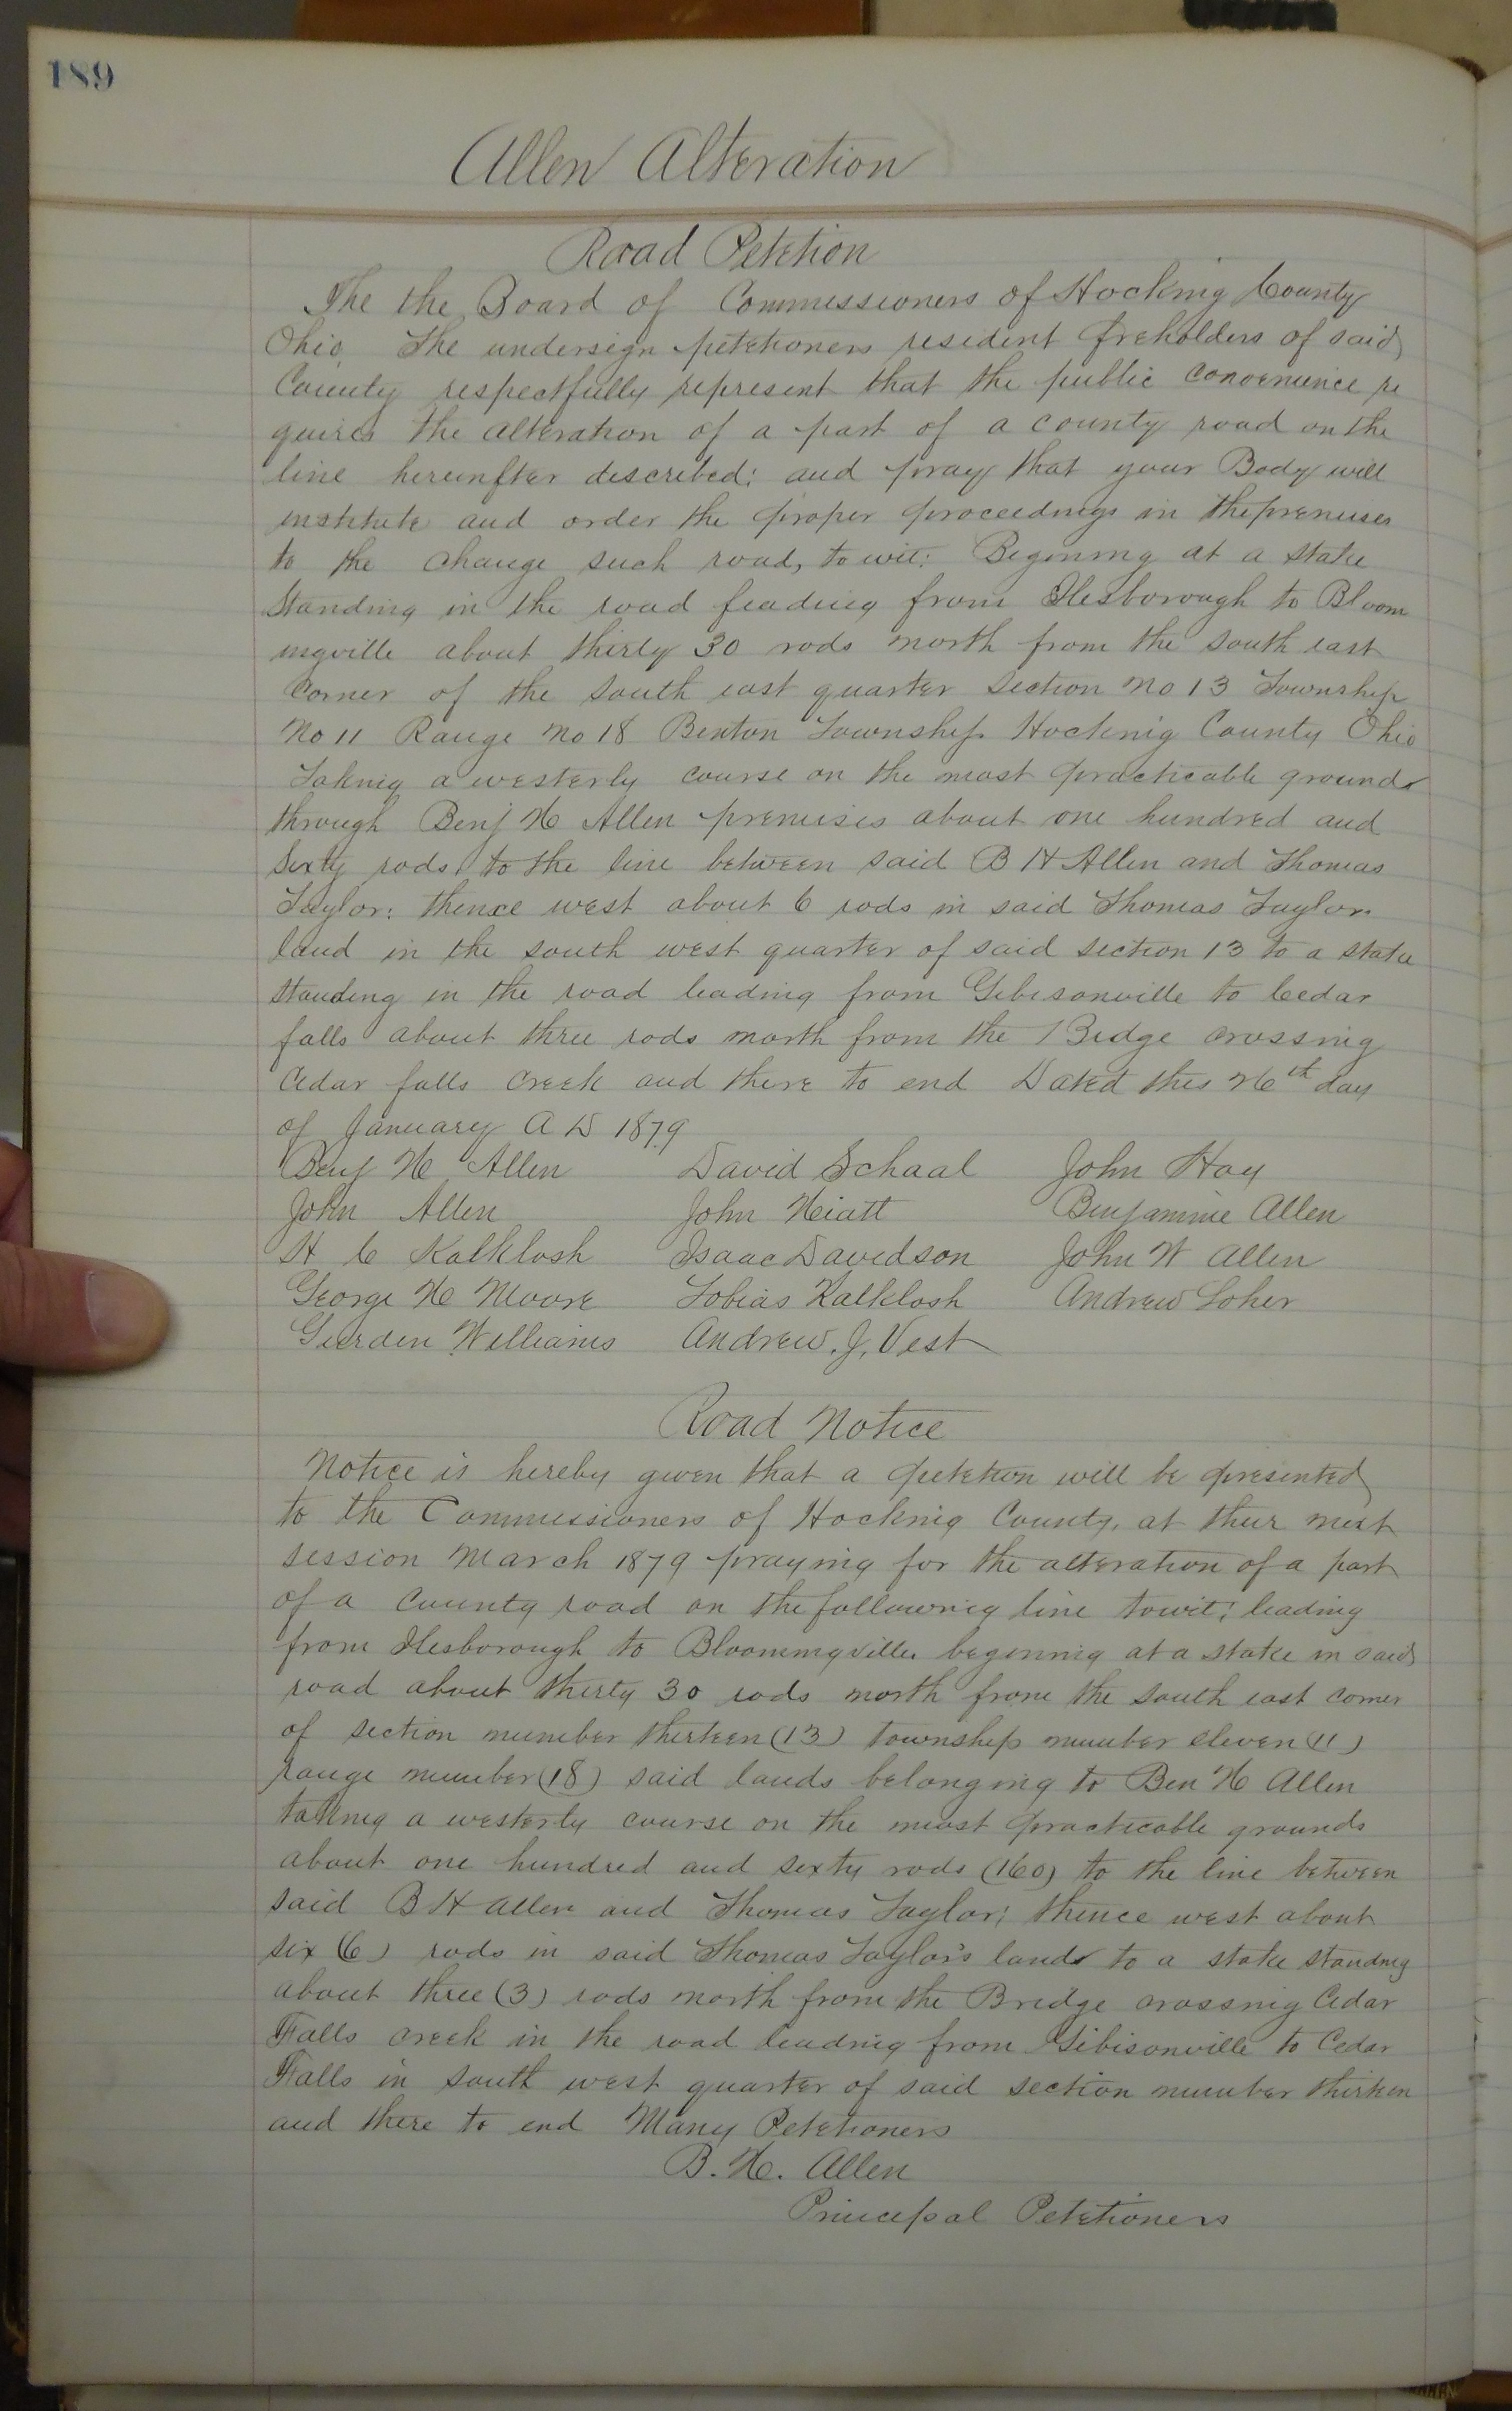 189
Allen Alteration
Road Petetion
The the Board of Commessioners of Hocking County
Ohio The undersign petetioners resident freholders of said
County respectfully represent that the public convenience re
quires the alteration of a part of a county road on the
line hereinfter described; and pray that your Body will
institute and order the proper proceedings in the premises
to the change such road, to wit; Begining at a stake
standing in the road leading from Ilesborough to Bloom
ingville about thirty 30 rods north from the south east
corner of the south east quarter section No 13 Township
No 11 Range No 18 Benton Township Hocking County Ohio
Taking a westerly course on the most practicable grounds
through Benj H Allen premises about one hundred and
sixty rods to the line between said B H Allen and Thomas
Taylor; thence west about 6 rods in said Thomas Taylors
land in the south west quarter of said section 13 to a stake
standing in the road leading from Gibisonville to Cedar
falls about three rods north from the Bridge crossing
Cedar falls creek and there to end Dated this th day
of January A D 1879
Benj H Allen David Schaal John Hoy
John Allen John Hiatt Benjamine Allen
H C Kalklosh Isaac Davidson John W Allen
George H Moore Tobias Kalklosh Andrew Loher
Gurden Williams Andrew. J. Vest
Road Notice
Notice is hereby given that a petetion will be presented
to the Commessioners of Hocking County, at their next
session March 1879 praying for the alteration of a part
of a county road on the following line towit; leading
from Ilesborough to Bloomingville begining at a stake in said
road about thirty 30 rods north from the south east corner
of section number thirteen (13) township number eleven (11)
range number (18) said lands belonging to Ben H Allen
taking a westerly course on the most practicable grounds
about one hundred and sixty rods (160) to the line between
said B H Allen and Thomas Taylor; thence west about
six (6) rods in said Thomas Taylor's lands to a stake standing
about three (3) rods north from the Bredge crossing Cedar
Falls creek in the road leading from Gibisonville to Cedar
Falls in south west quarter of said section number thirteen
and there to end Many Petetioners
B. H. Allen
Principal Petetioners